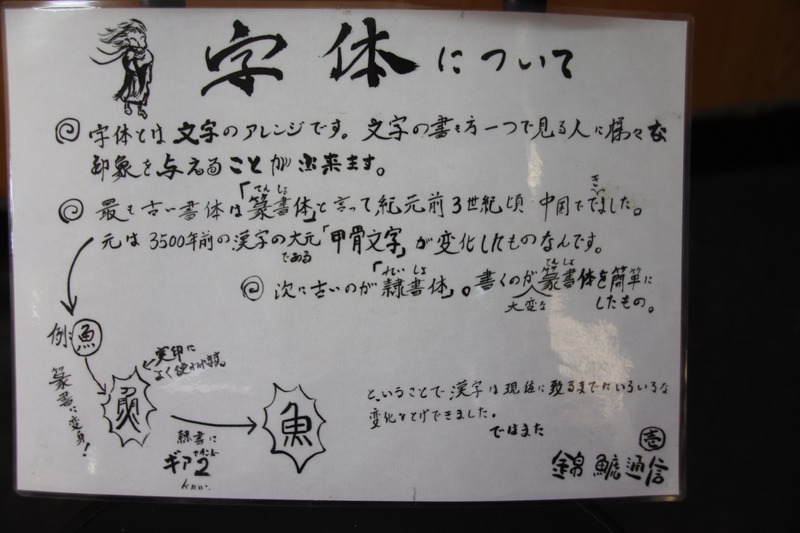 字体について
字体とは文字のアレンジです。文字の書き方一つで見る人に様々な
印象を与えることが出来ます。
最も古い書体は「篆書体」と言って紀元前3世紀頃 中国でできました。
てんしょ
元は3500年前の漢字の大元である「甲骨文字」が変化したものなんです。
次に古いのが「隷書体」。書くのが大変な篆書体を簡単に
れいしょ
てんしょ
したもの。
例:魚
篆書に変身!
実印に
よく使われます。
隷書に
ギア2
セカンド
魚
ということで漢字は現在に至るまでにいろいろな
変化をとげてきました。
ではまた
壱
錦鯱通信